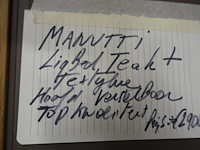 MANUTTI
Ligbed Teak +
Textylene
Hoofd verstelbaar
Top kwaliteit